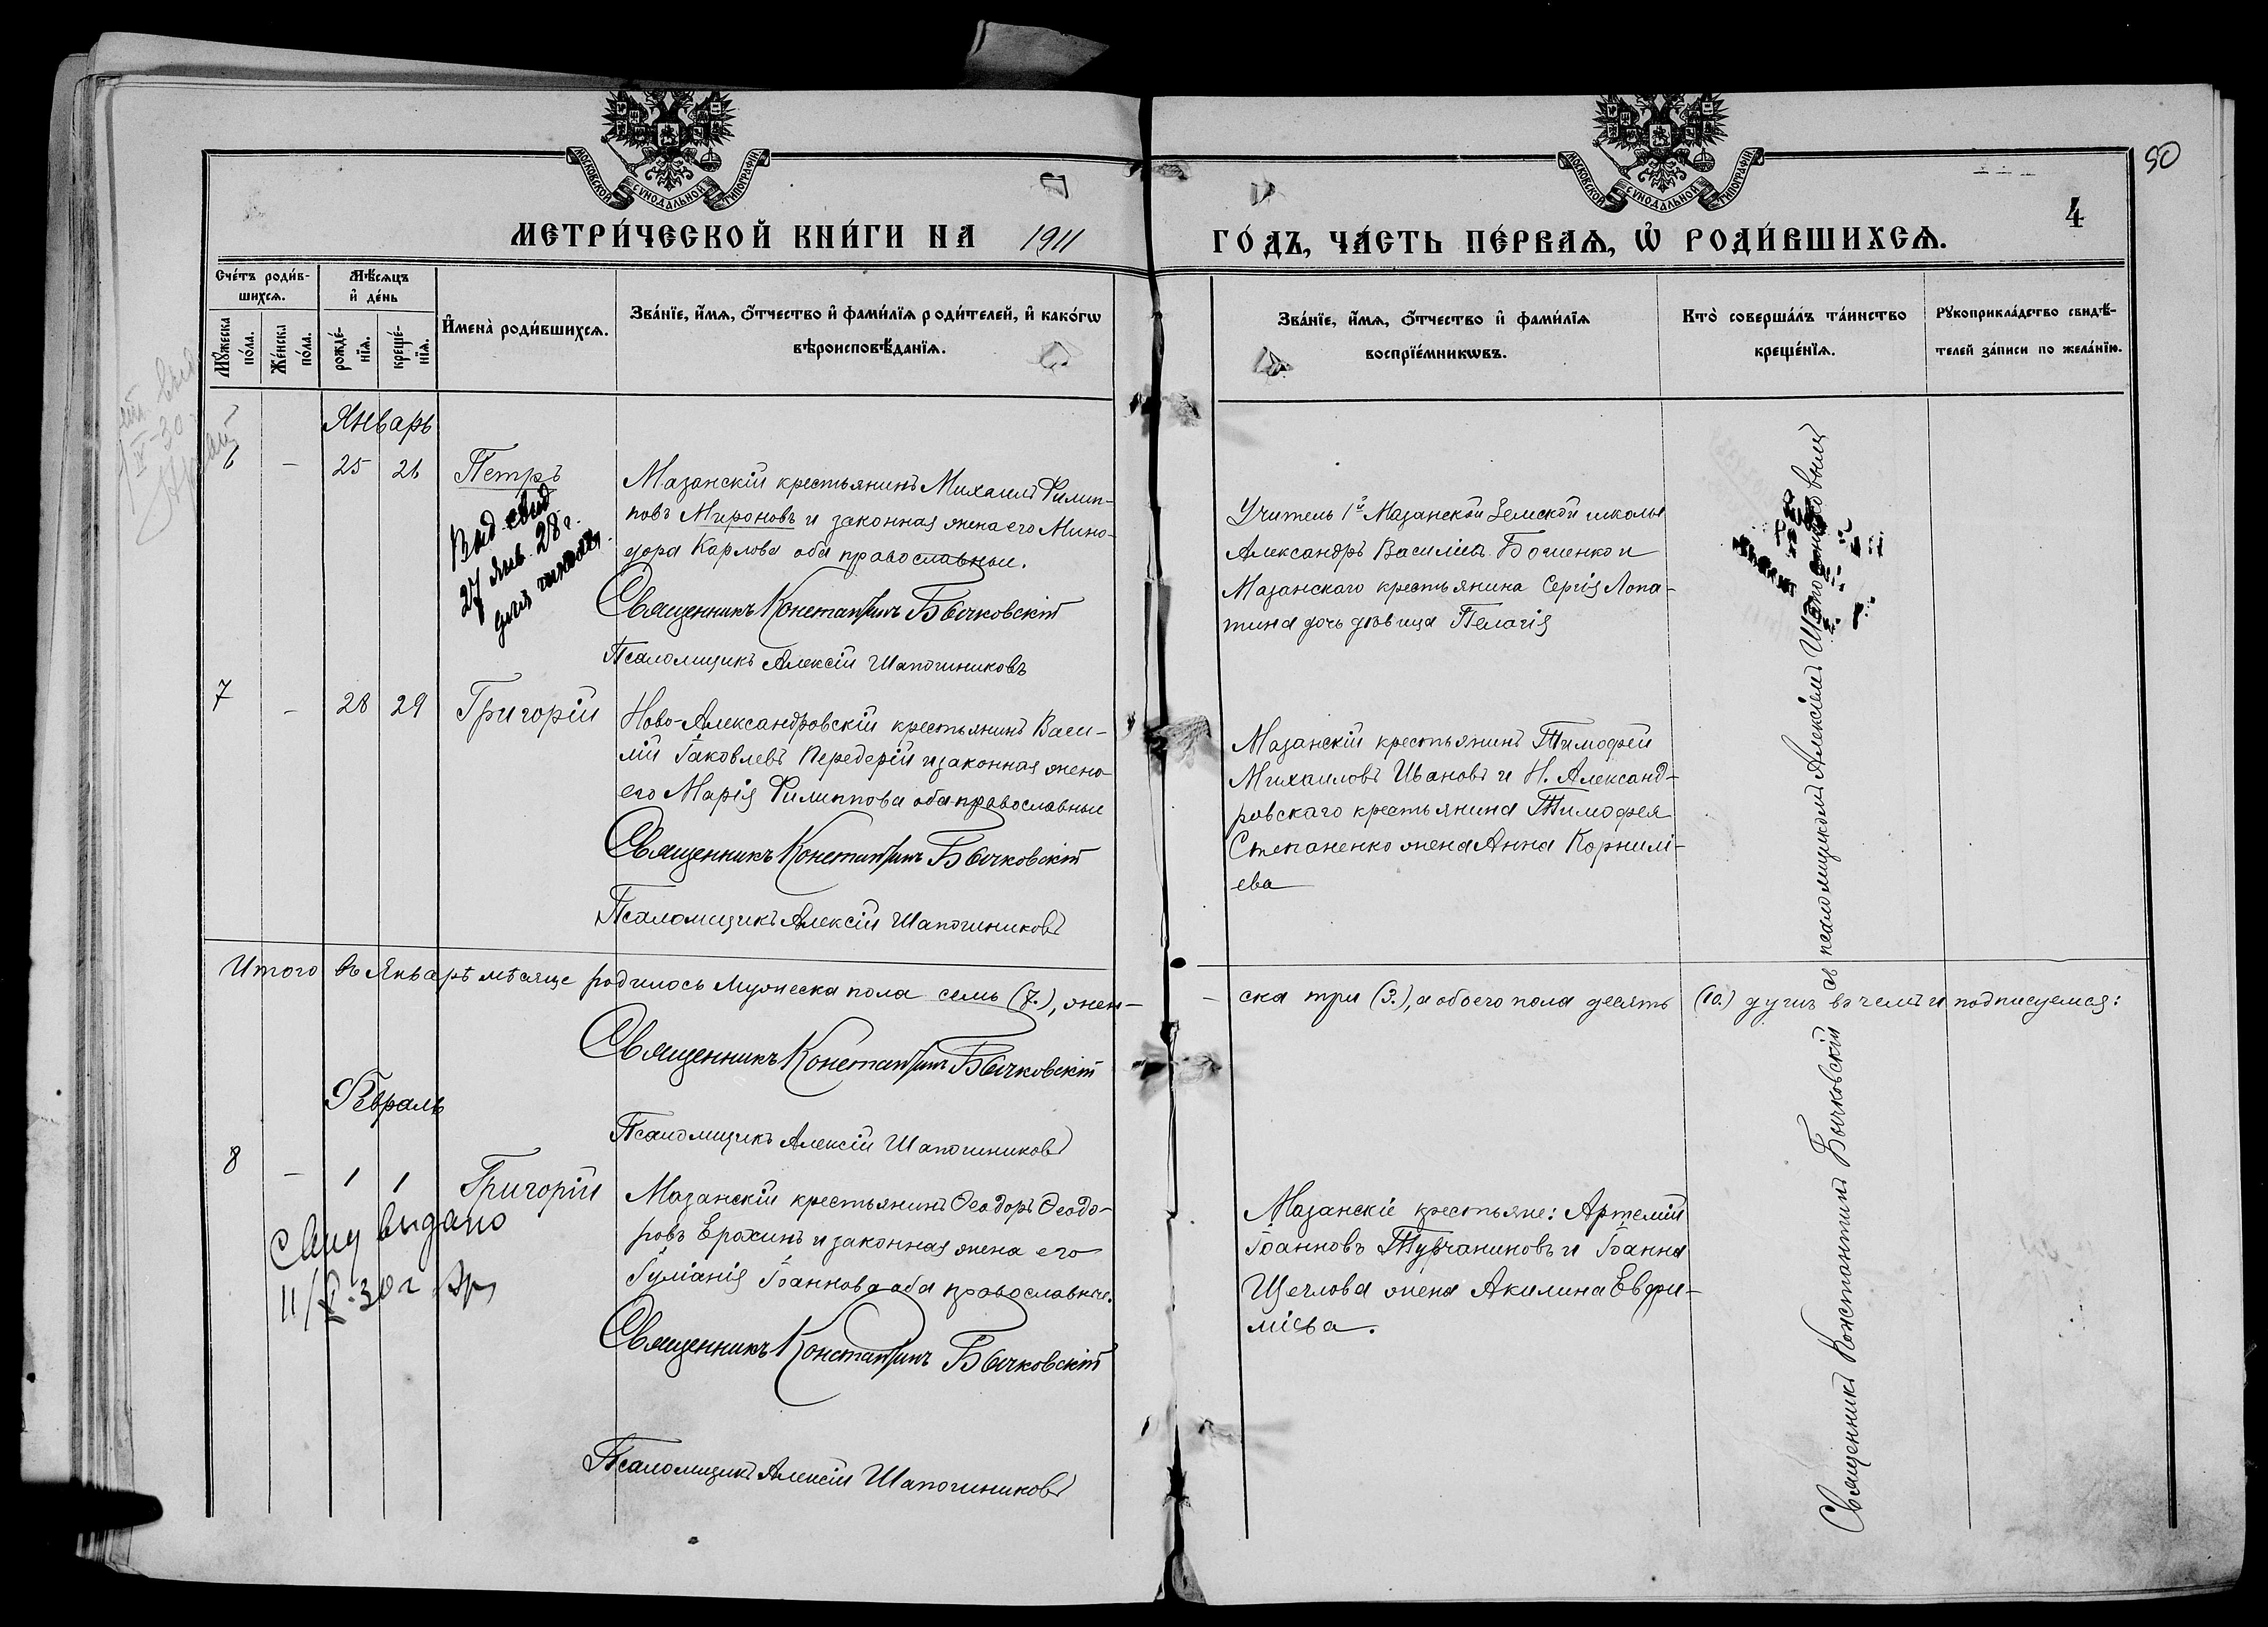 50
4
МОСКОВСКОЙ СѴНОДАЛЬНОЙ ТИПОГРАФІИ.
МОСКОВСКОЙ СѴНОДАЛЬНОЙ ТИПОГРАФІИ.
МЕТРИ́ЧЕСКОЙ КНИ́ГИ НА 1911
ГО́ДЪ, ЧА́СТЬ ПЕ́РВАѦ, Ѡ҆ РОДИ́ВШИХСѦ.
Сче́тъ роди́в-
шихсѧ.
Мѣ́сѧцъ
и҆ де́нь
Мꙋ́жеска
по́ла.
Же́нска
по́ла.
рожде́-
нїѧ.
креще́-
нїѧ.
И҆мена̀ роди́вшихсѧ.
Зва́нїе, и҆́мѧ, ѻ҆́тчество и҆ фами́лїѧ роди́телей, и҆ како́гѡ
вѣроисповѣ́данїѧ.
Зва́нїе, и҆́мѧ, ѻ҆́тчество и҆ фами́лїѧ
воспрїе́мникѡвъ.
Кто̀ соверша́лъ та́инство
креще́нїѧ.
Рꙋкоприкла́дство свидѣ́-
телей за́писи по жела́нїю.
Январь
6 – 25 26 Петръ
Выд. свид
27 янв. 28 г.
Мазанскій крестьянинъ Михаилъ Филип-
повъ Мироновъ и законная жена его Мино-
дора Карлова оба православные.
Священникъ Константинъ Бычковскій
Псаломщикъ Алексій Шапошниковъ
Учитель 1й Мазанской Земской школы
Александръ Василіевъ Боженко и
Мазанскаго крестьянина Сергія Лопа-
тина дочь дѣвица Пелагія
7 – 28 29 Григорій
Ново-Александровскій крестьянинъ Васи-
лій Іаковлевъ Передерій и законная жена
его Марія Филиппова оба православные
Священникъ Константинъ Бычковскій
Псаломщикъ Алексій Шапошниковъ
Мазанскій крестьянинъ Тимофей
Михаиловъ Ивановъ и Н. Александ-
ровскаго крестьянина Тимофея
Степаненко жена Анна Корнилі-
ева
Итого въ Январѣ мѣсяце родилось мужеска пола семь (7.), жен-
ска три (3.), а обоего пола десять (10.) душъ въ чемъ и подписуемся:
Священникъ Константинъ Бычковскій
Псаломщикъ Алексій Шапошниковъ
Февраль
8 – 1 1 Григорій
Свид выдано
Мазанскій крестьянинъ Ѳеодоръ Ѳеодо-
ровъ Ерохинъ и законная жена его
Іуліанія Іоаннова оба православные.
Священникъ Константинъ Бычковскій
Псаломщикъ Алексій Шапошниковъ
Мазанскіе крестьяне: Артемій
Іоанновъ Турчаниковъ и Іоанна
Щеглова жена Акилина Евфи-
міева.
Священникъ Константинъ Бычковскій съ псаломщикомъ Алексіемъ Шапошниковымъ